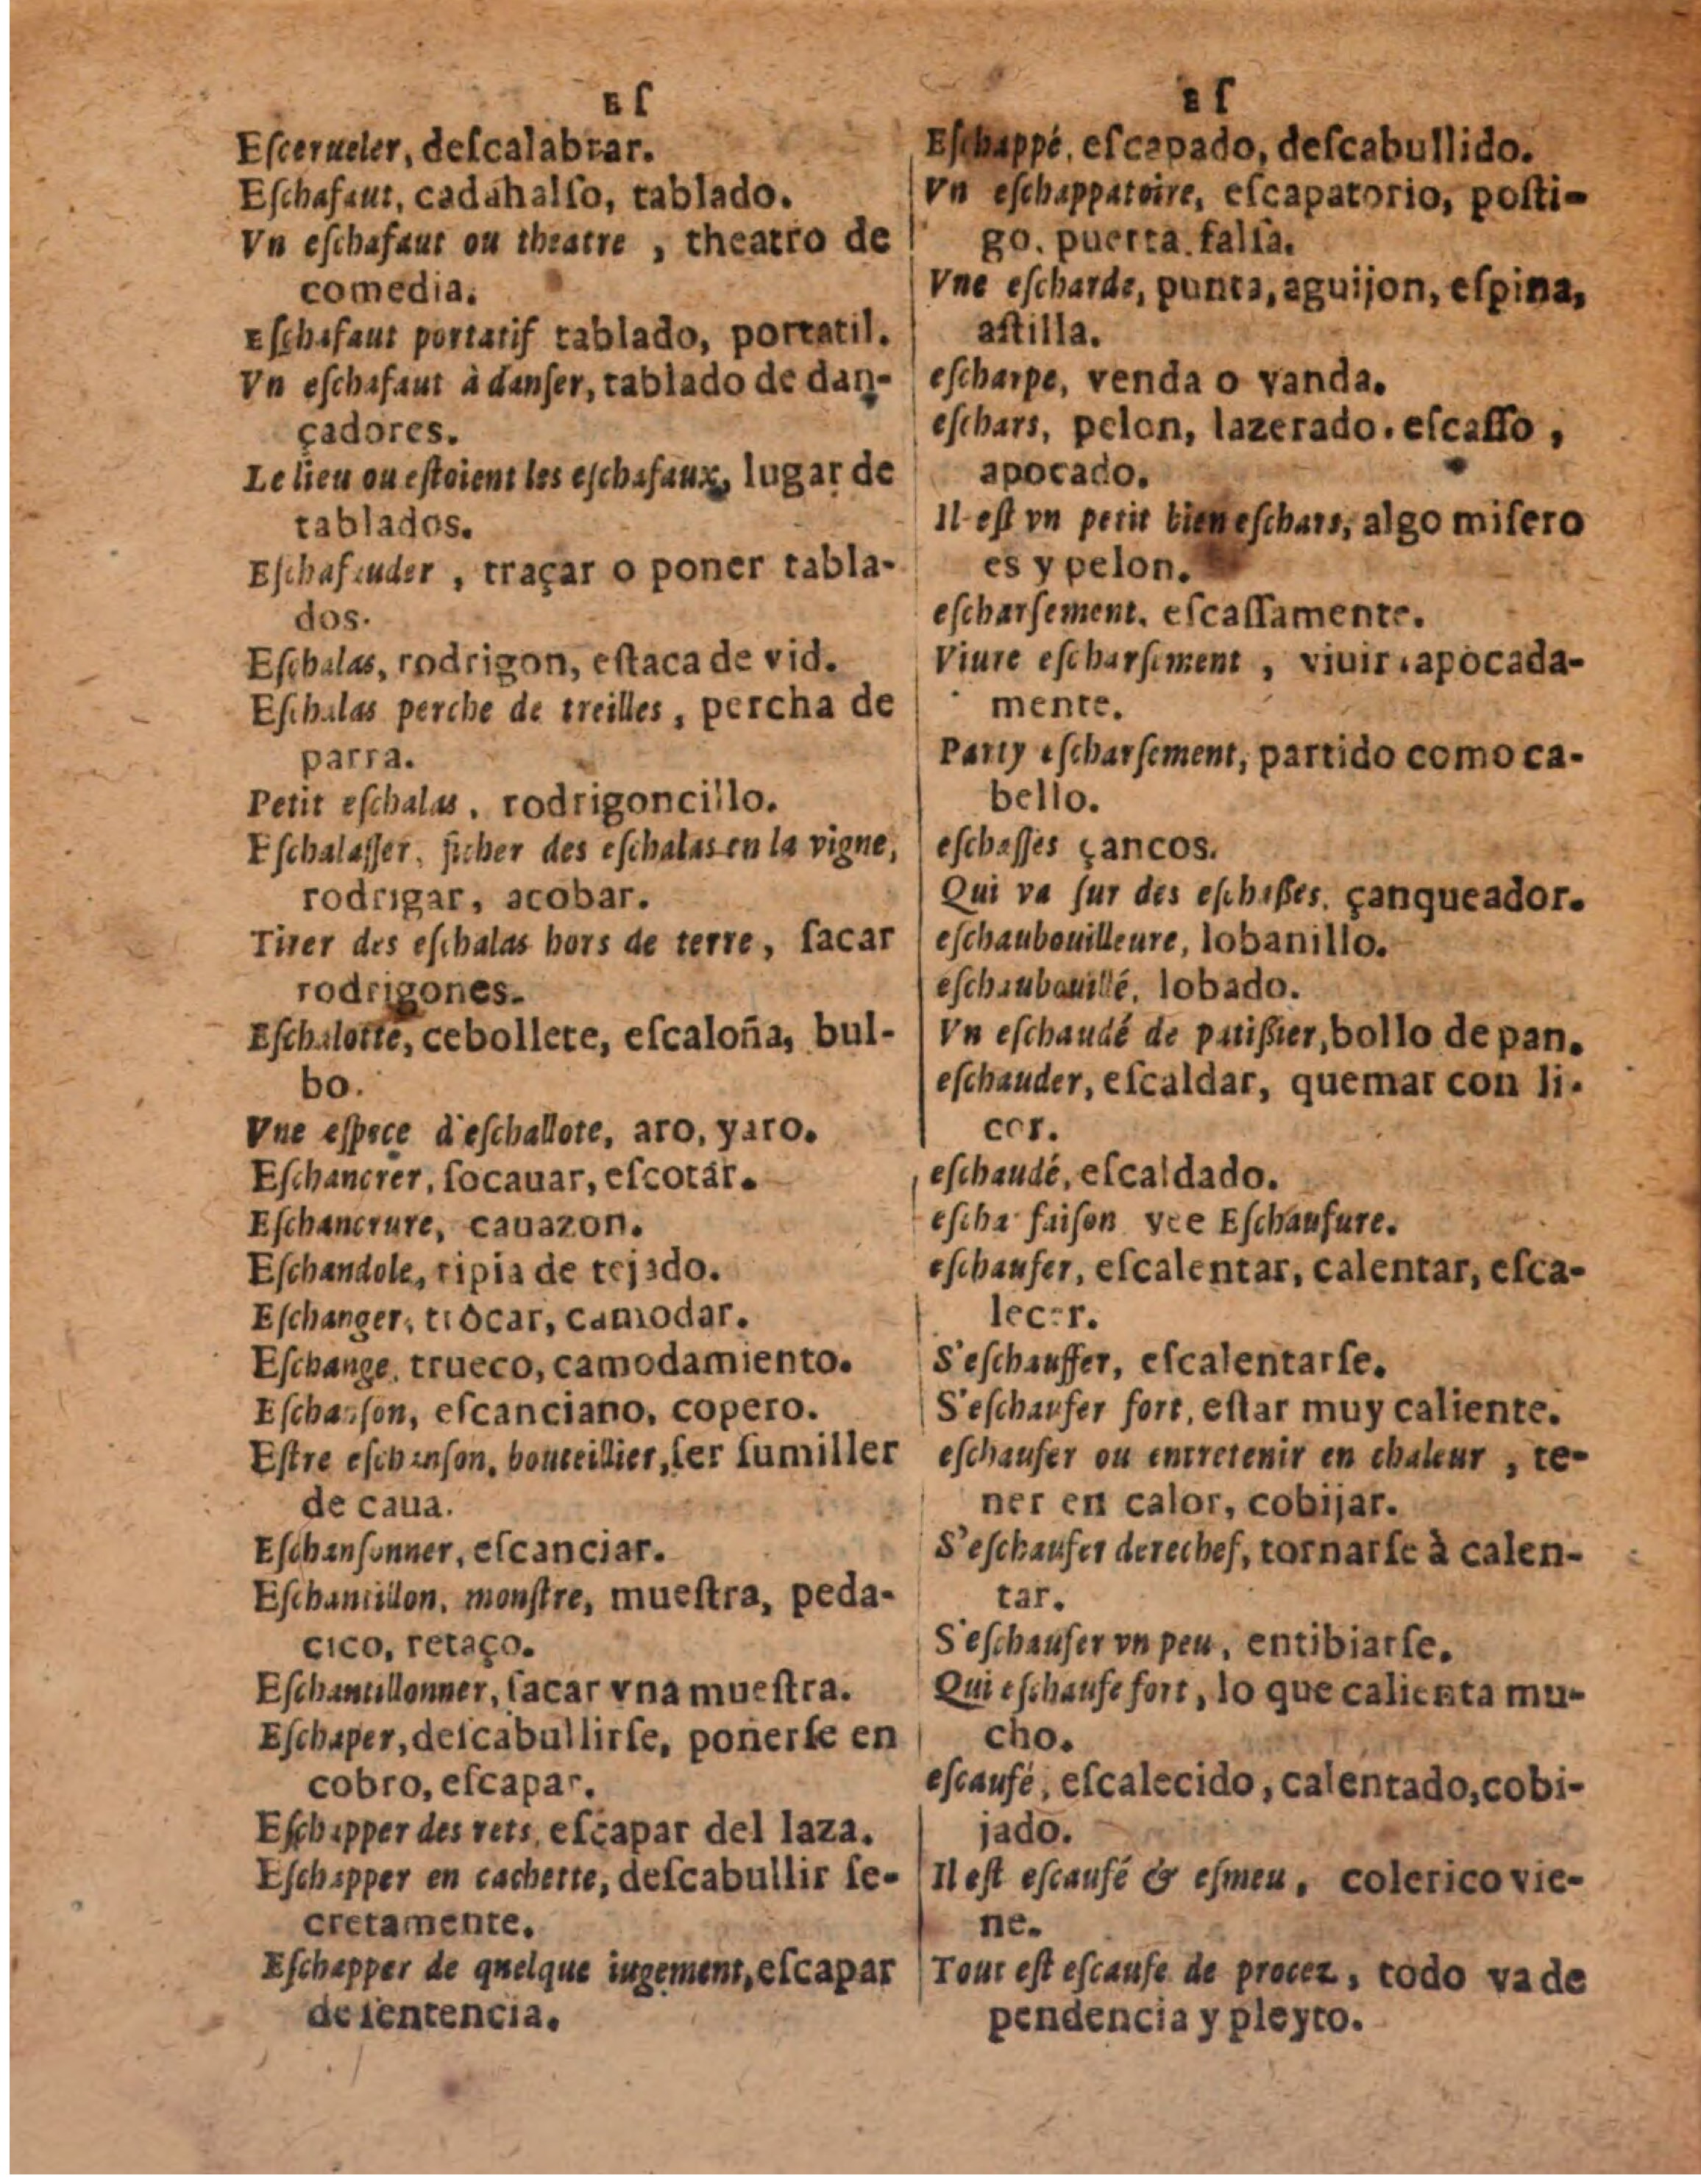 Eſ
Eſcerueler, deſcalabrar.
Eſchafaut, cadahalſo, tablado.
Vn eſchafaut ou theatre , theatro de
comedia.
Eſchafaut portatif tablado, portatil.
Vn eſchafaut à danſer, tablado de dan-
çadores.
Le lieu ou eſtoient les eſchafaux, lugar de
tablados.
Eſchafauder , traçar o poner tabla-
dos.
Eſchalas, rodrigon, eſtaca de vid.
Eſchalas perche de treilles , percha de
parra.
Petit eſchalas , rodrigoncillo.
Eſchalaſſer, ficher des eſchalas en la vigne,
rodrigar, acobar.
Tirer des eſchalas hors de terre, ſacar
rodrigones.
Eſchalotte, cebollete, eſcaloña, bul-
bo.
Vne eſpece d'eſchallote, aro, yaro.
Eſchancrer, ſocauar, eſcotar.
Eſchancrure, cauazon.
Eſchandole, ripia de tejado.
Eſchanger, trocar, camodar.
Eſchange, trueco, camodamiento.
Eſchanſon, eſcanciano, copero.
Eſtre eſchanſon, bouteillier, ſer ſumiller
de caua.
Eſchanſonner, eſcanciar.
Eſchantillon, monſtre, mueſtra, peda-
cico, retaço.
Eſchantillonner, ſacar vna mueſtra.
Eſchaper, deſcabullirſe, ponerſe en
cobro, eſcapar.
Eſchapper des rets, eſcapar del laza.
Eſchapper en cachette, deſcabullir ſe-
cretamente.
Eſchapper de quelque iugement, eſcapar
de ſentencia.
Eſ
Eſchappé, eſcapado, deſcabullido.
Vn eſchappatoire, eſcapatorio, poſti-
go. puerta falſa.
Vne eſcharde, punta, aguijon, eſpina,
aſtilla.
eſcharpe, venda o vanda.
eſchars, pelon, lazerado. eſcaſſo ,
apocado.
Il eſt vn petit bien eſchars, algo miſero
es y pelon.
eſcharſement. eſcaſſamente.
Viure eſcharſement , viuir apocada-
mente.
Party eſcharſement, partido como ca-
bello.
eſchaſſes çancos.
Qui va ſur des eſchaſſes, çanqueador.
eſchaubouilleure, lobanillo.
eſchaubouillé, lobado.
Vn eſchaudé de patiſſier, bollo de pan.
eſchauder, eſcaldar, quemar con li-
cor.
eſchaudé, eſcaldado.
eſcha faiſon vee Eſchaufure.
eſchaufer, eſcalentar, calentar, eſca-
lecer.
S'eſchauffer, eſcalentarſe.
S'eſchaufer fort, eſtar muy caliente.
eſchaufer ou entretenir en chaleur , te-
ner en calor, cobijar.
S'eſchaufer derechef, tornarſe à calen-
tar.
S'eſchaufer vn peu, entibiarſe.
Qui eſchaufe fort, lo que calienta mu-
cho.
eſcaufé, eſcalecido, calentado, cobi-
jado.
Il eſt eſcaufé & eſmeu, colerico vie-
ne.
Tout eſt eſcaufe de procez, todo va de
pendencia y pleyto.